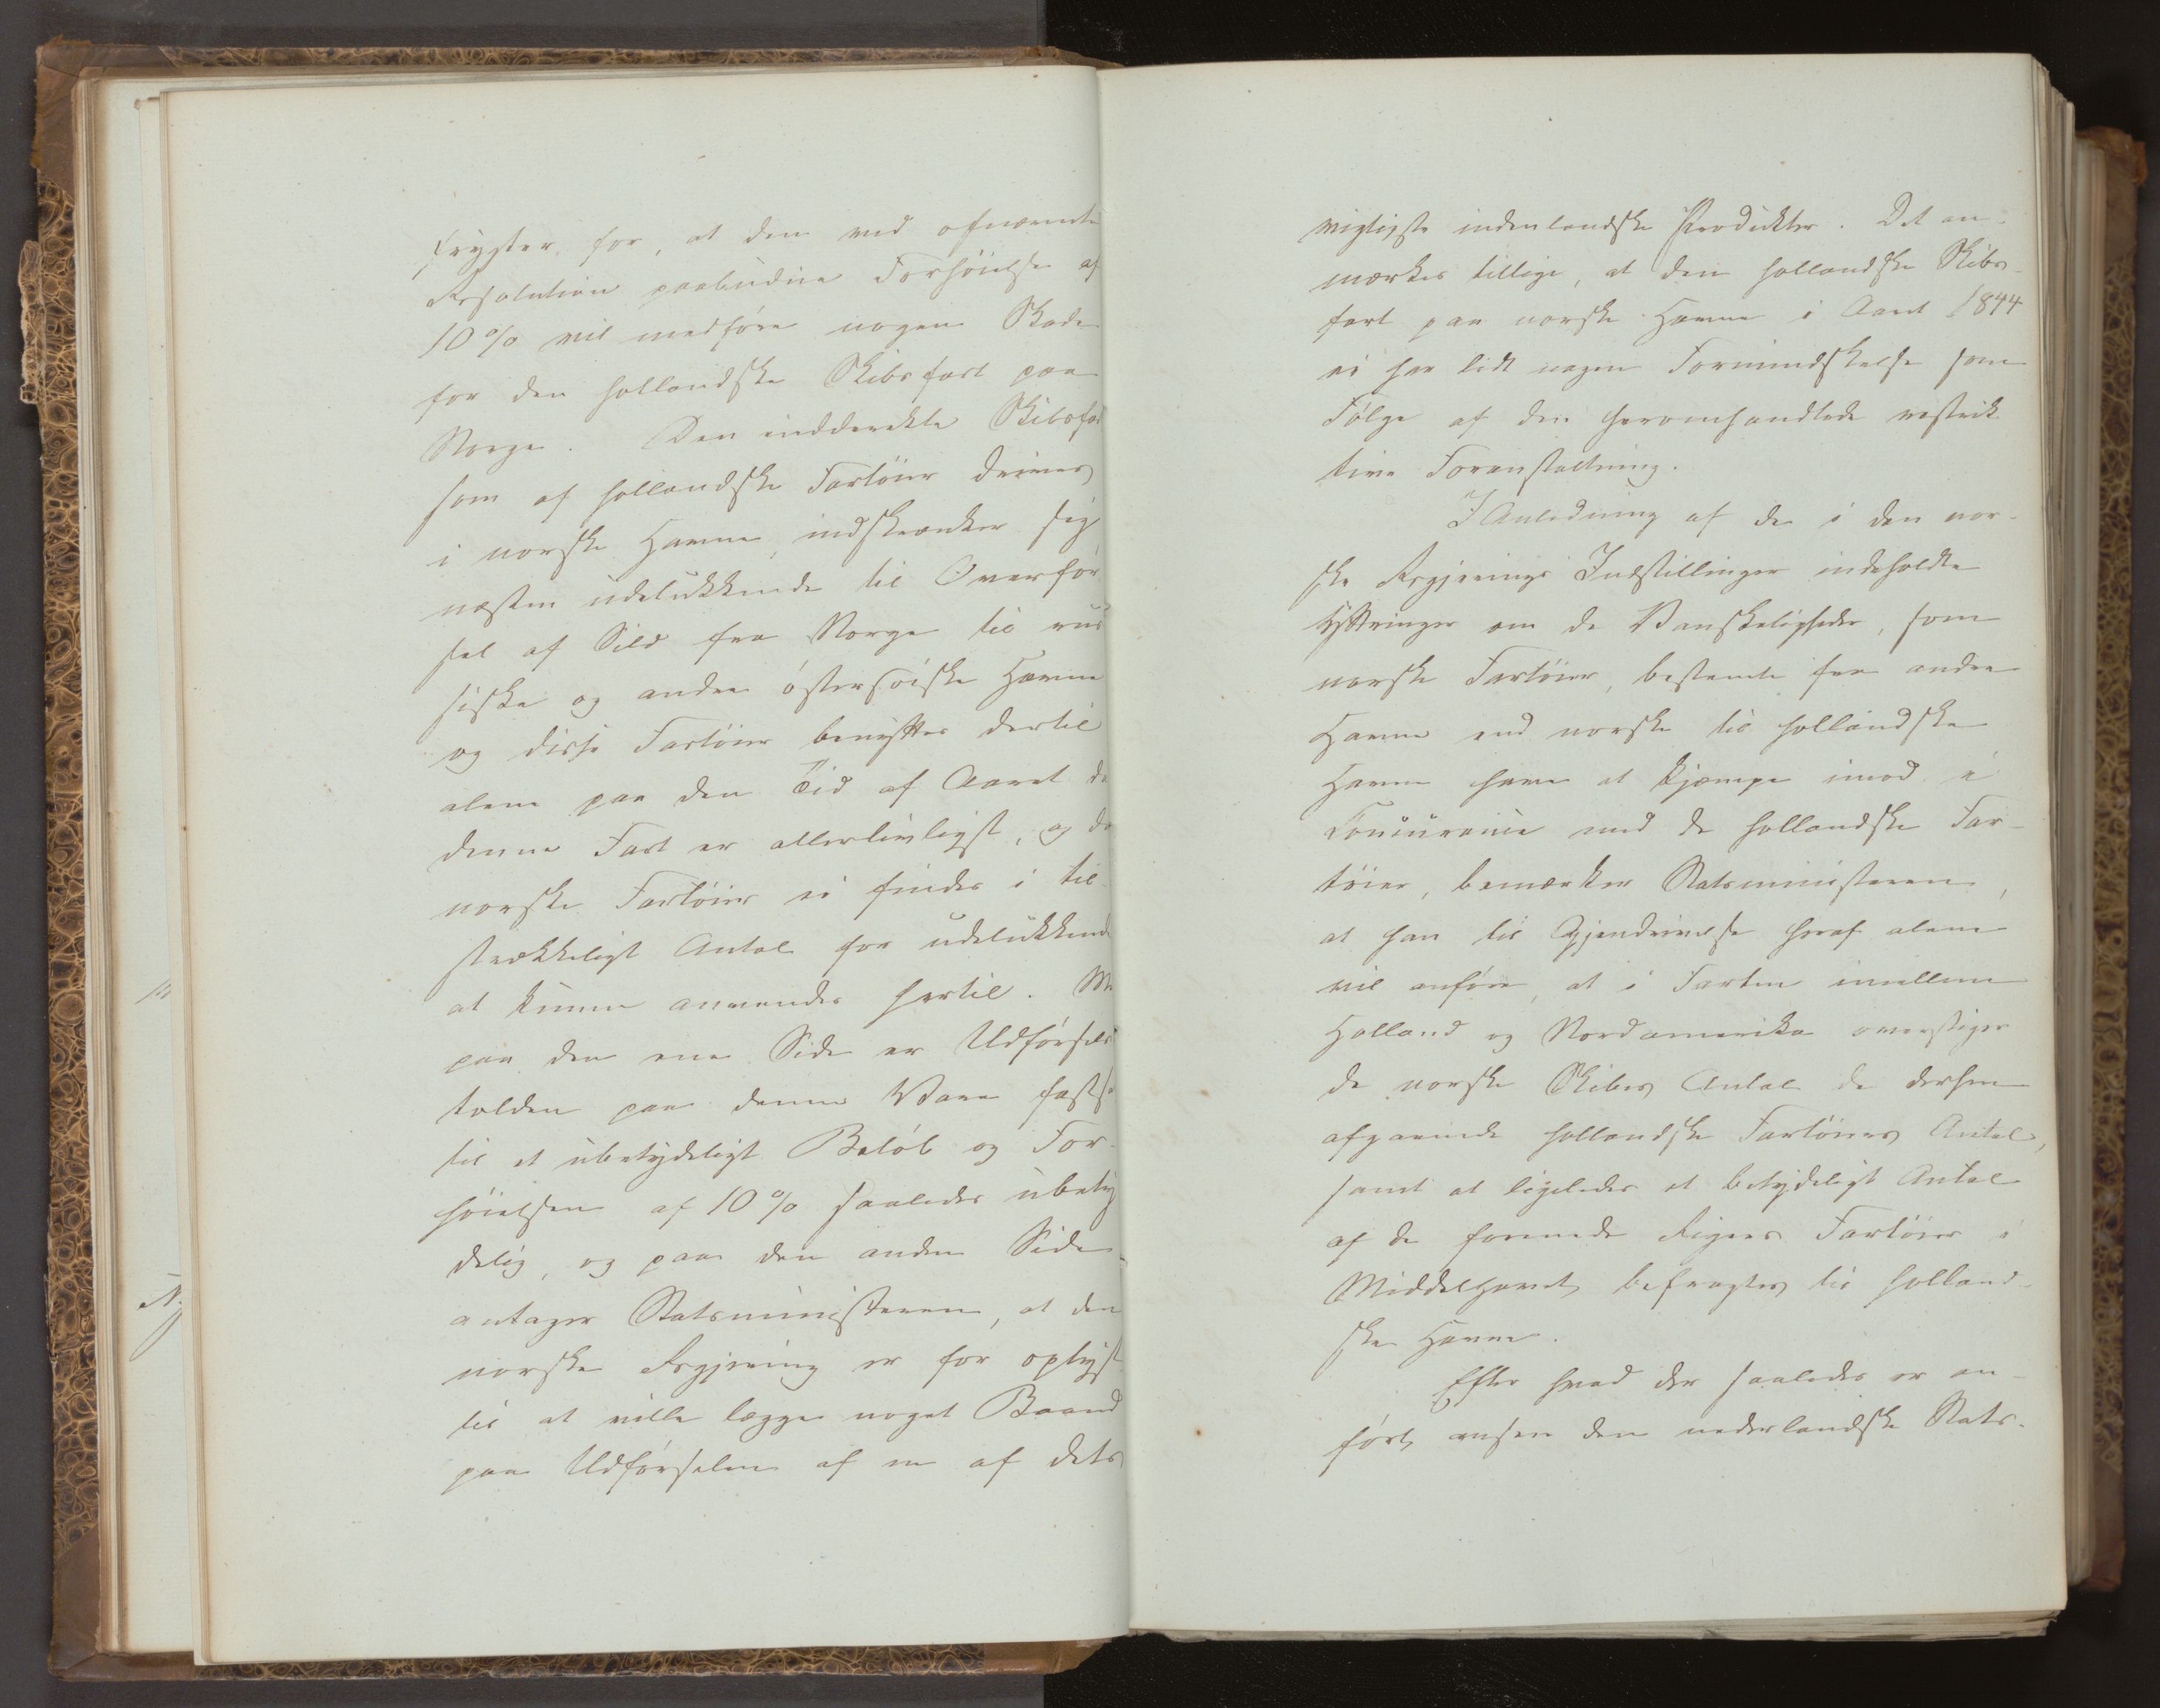 frygter for, at den ved ofnævnte
Resolution paabudne Forhöielse af
10 % vil medföre nogen Skade
for den hollandske Skibsfart paa
Norge. Den indderekte Skibsfar
som af hollandske Fartöier drives
i norske Havne, indskrænker sig
næsten udelukkende til Overför
sel af Sild fra Norge til rus
siske og andre östersöiske Havne
og disse Fartöier benyttes dertil
alene paa den Tid af Aaret da
denne Fart er allerlivligst, og da
norske Fartöier ei findes i til
strækkeligt Antal for udelukkende
at kunne anvendes hertil. Me
paa den ene Side er Udförsels
tolden paa denne Vare fastsa
til et ubetydeligt Belöb og For-
höielsen af 10 % saaledes ubety
delig, og paa den anden Side
antager Statsministeren, at den
norske Regjering er for oplyst
til at ville lægge noget Baand
paa Udförselen af en af dets
vigtigste indenlandske Produkter. Det an-
mærkes tillige, at den hollandske Skibs-
fart paa norske Havne i Aaret 1844
ei har lidt nogen Formindskelse som
Fölge af den heromhandlede restrik
tive Foranstaltning.
I Anledning af de i den nor-
ske Regjerings Indstillinger indeholdte
Yttringer om de Vanskeligheder, som
norske Fartöier, bestemte fra andre
Havne end norske til hollandske
Havne have at kjæmpe imod i
Concurrence med de hollandske Far-
töier, bemærker Statsministeren,
at han til Gjendrivelse heraf alene
vil anföre, at i Farten imellem
Holland og Nordamerika overstiger
de norske Skibes Antal de derhen
afgaaende hollandske Fartöiers Antal,
samt at ligeledes et betydeligt Antal
af de forenede Rigers Fartöier i
Middelhavet befragtes til holland-
ske Havne.
Efter hvad der saaledes er an-
fört, anseer den nederlandske Stats-